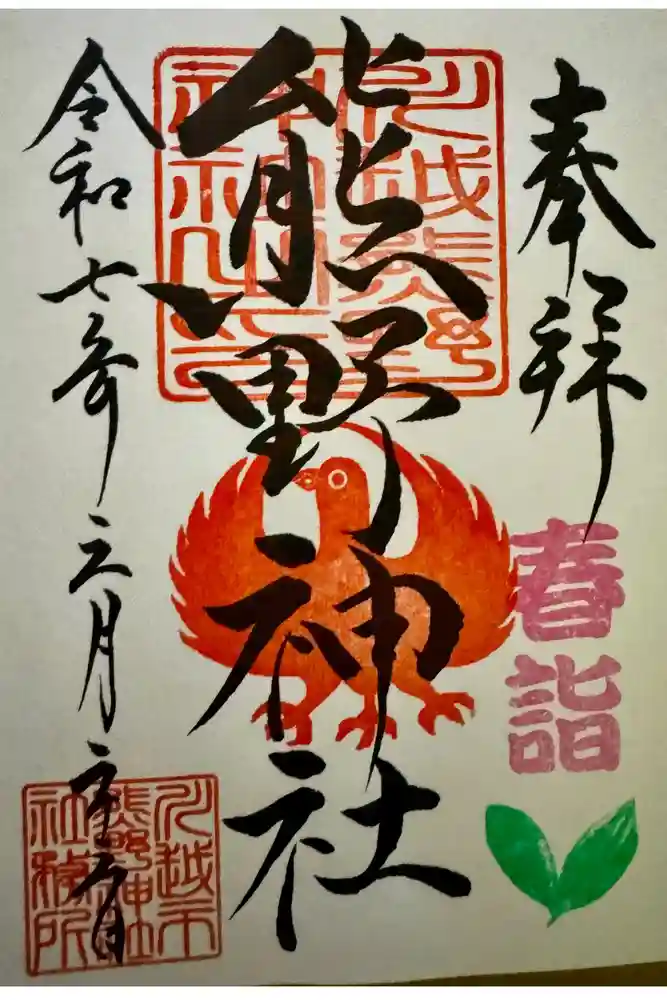 奉拝
春詣
川越熊野
神社之印
熊野神社
令和七年三月
川越市
熊野神社
社務所